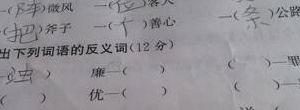 一(阵)微风 一(位)客人
(把)斧子 一(个)善心 一(条)公路
出下列词语的反义词(12分)
廉—( ) ( )—罪
( ) 优—( ) ( )—